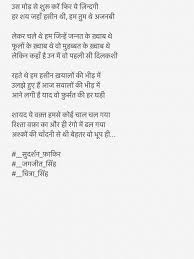 उस मोड़ से शुरू करें फिर ये ज़िन्दगी
हर शय जहाँ हसीन थी, हम तुम थे अजनबी
लेकर चले थे हम जिन्हें जन्नत के ख़्वाब थे
फूलों के ख़्वाब थे वो मुहब्बत के ख़्वाब थे
लेकिन कहाँ है उन में वो पहली सी दिलकशी
रहते थे हम हसीन ख़यालों की भीड़ में
उलझे हुए हैं आज सवालों की भीड़ में
आने लगी है याद वो फ़ुर्सत की हर घड़ी
शायद ये वक़्त हमसे कोई चाल चल गया
रिश्ता वफ़ा का और ही रंगो में ढल गया
अश्कों की चाँदनी से थी बेहतर वो धूप ही...
#_सुदर्शन_फ़ाकिर
#_जगजीत_सिंह
#_चित्रा_सिंह